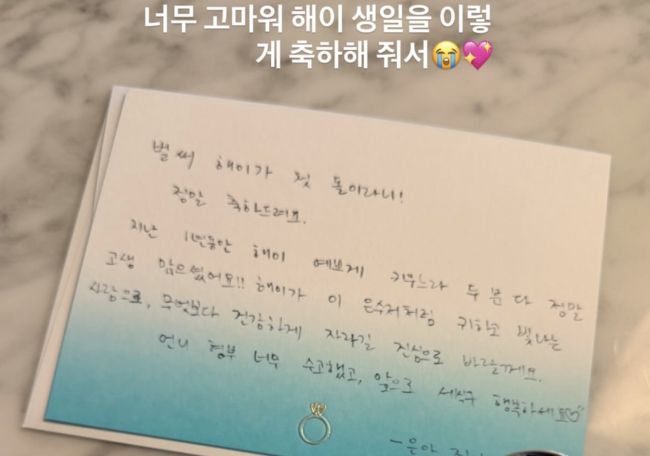 너무 고마워 해이 생일을 이렇
게 축하해 줘서😭💖
벌써 해이가 첫 돌이라니!
정말 축하드려요.
지난 1년동안 해이 예쁘게 키우느라 두 분 다 정말
고생 많으셨어요!! 해이가 이 은수저처럼 귀하고 빛나는
사람으로, 무엇보다 건강하게 자라길 진심으로 바랄께요.
언니 형부 너무 수고했고, 앞으로 세식구 행복하세요♡
-은아